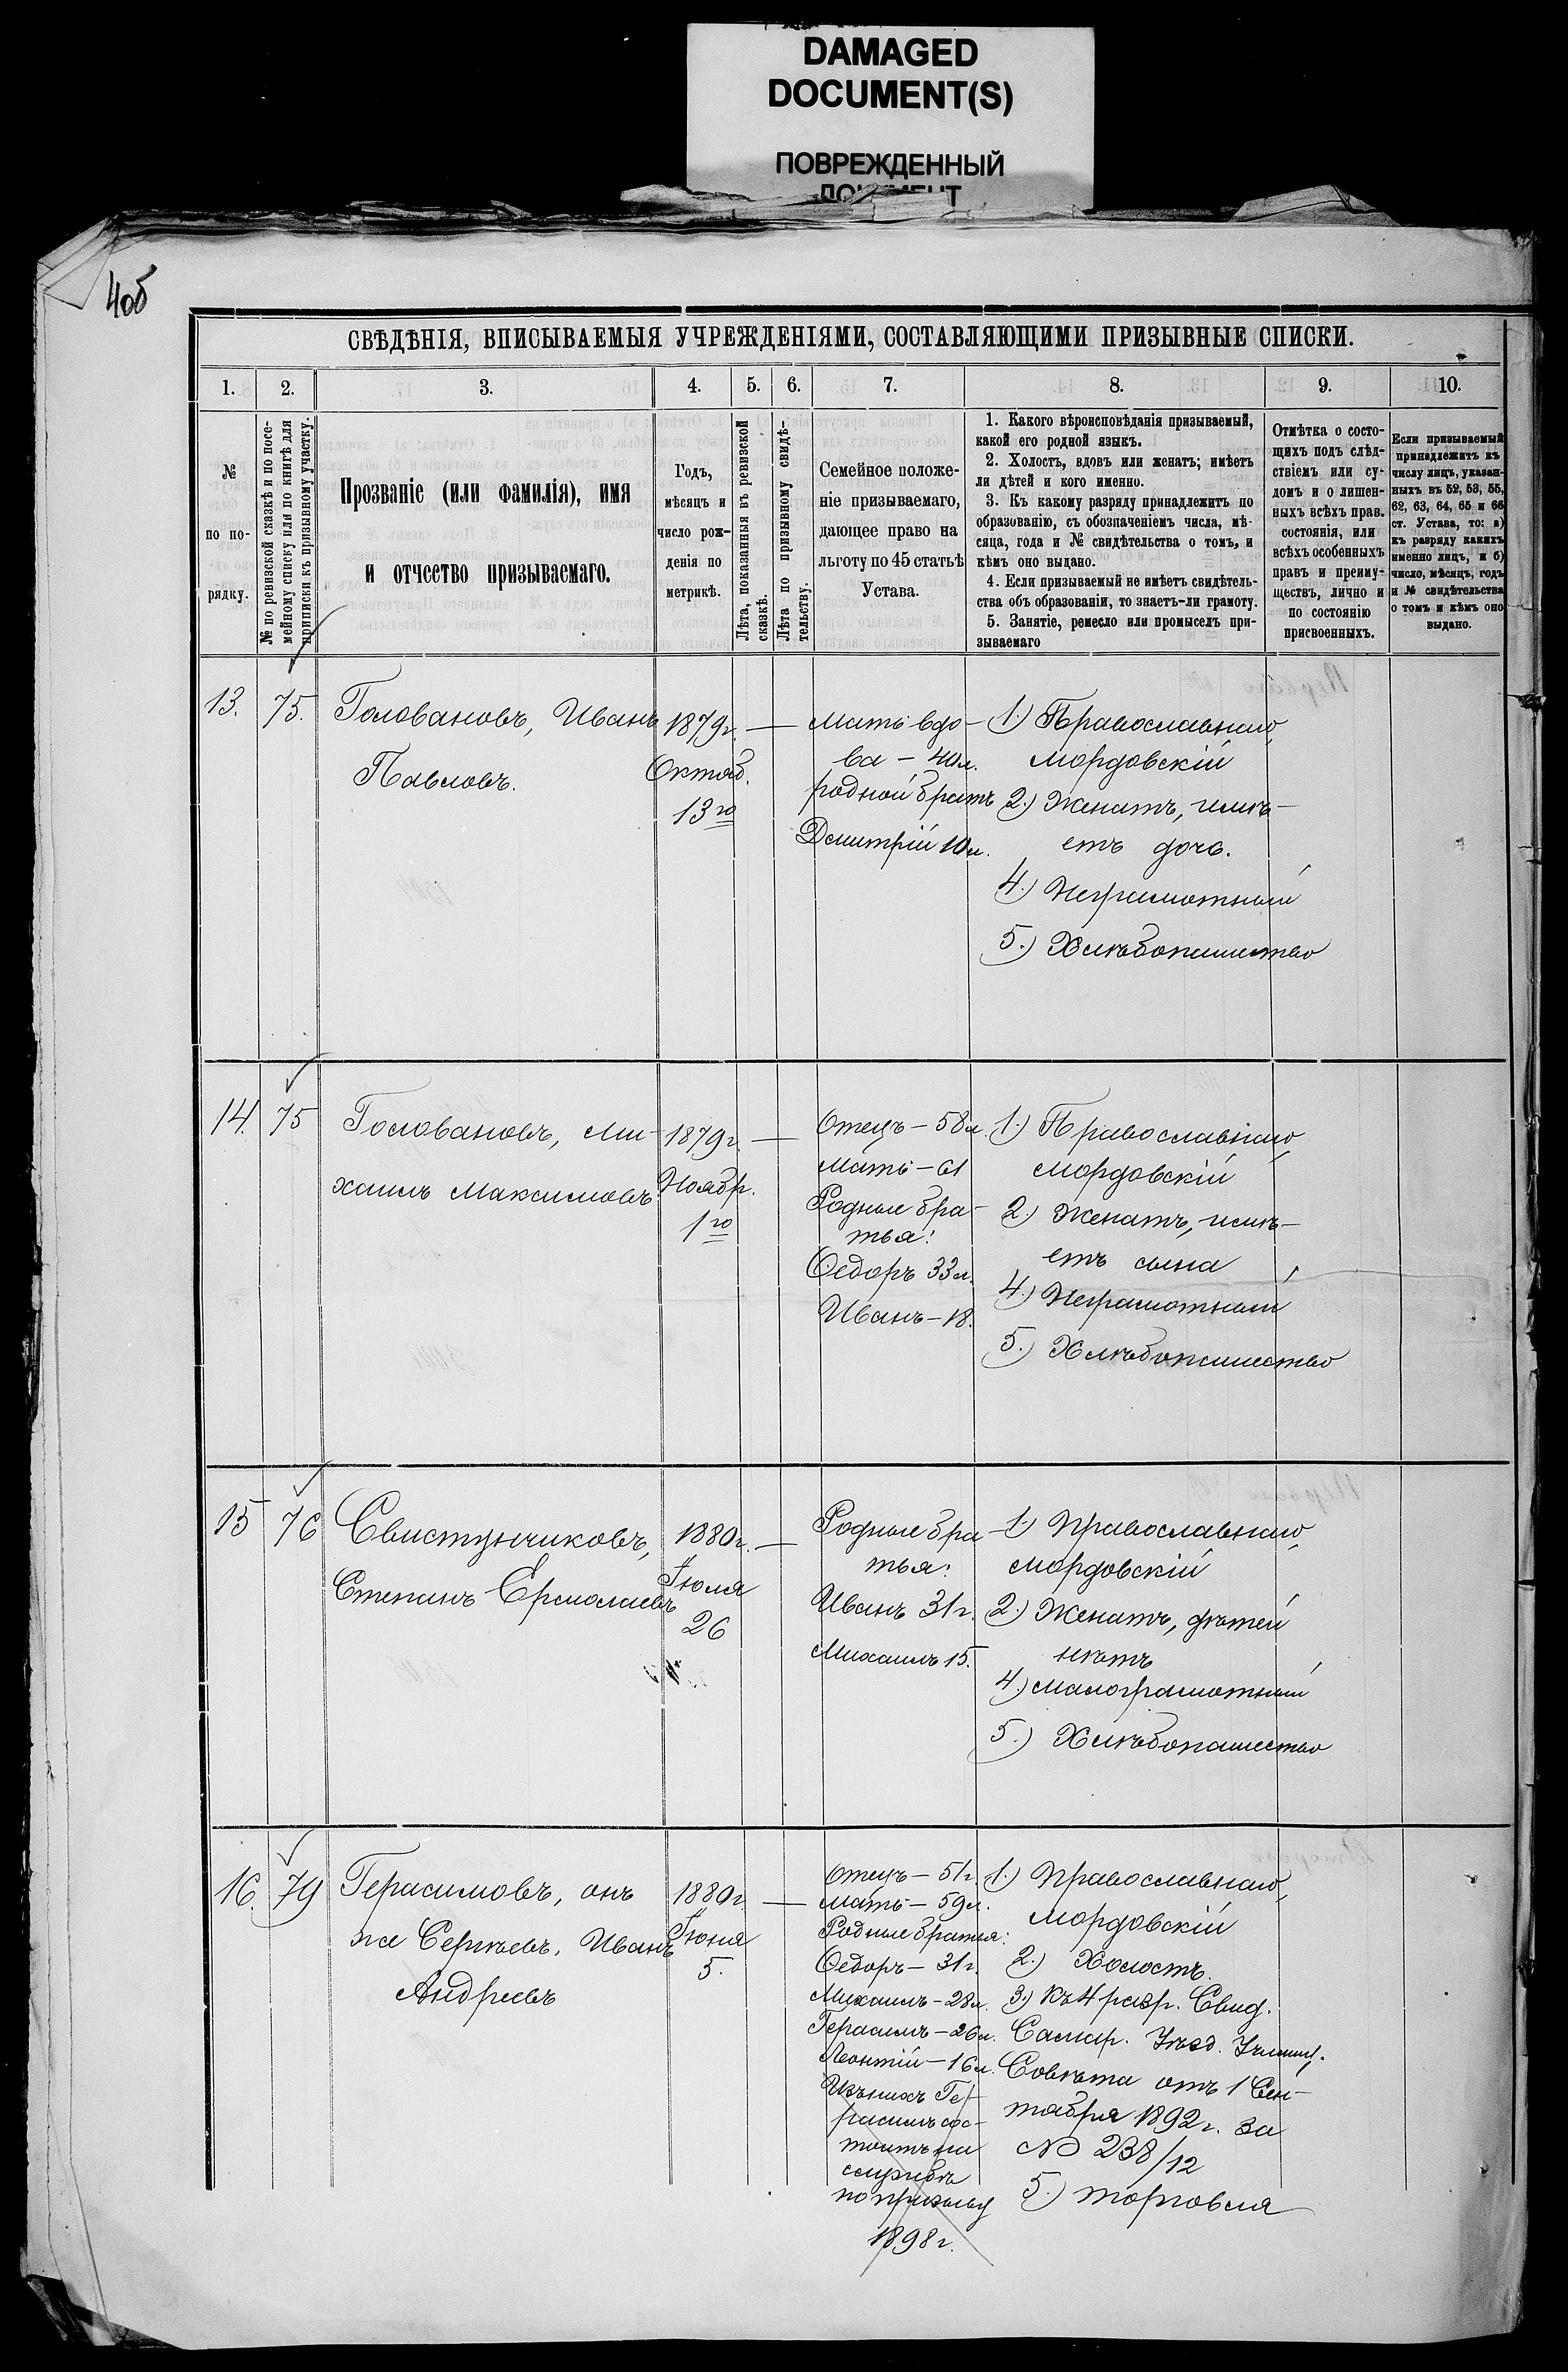 DAMAGED
DOCUMENT(S)
ПОВРЕЖДЕННЫЙ
ДОКУМЕНТ
40б
СВѢДѢНІЯ, ВПИСЫВАЕМЫЯ УЧРЕЖДЕНІЯМИ, СОСТАВЛЯЮЩИМИ ПРИЗЫВНЫЕ СПИСКИ.
1. 2. 3. 4. 5. 6. 7. 8. 9. 10.
№
по по-
рядку.
№ по ревизской сказкѣ и по посе-
мейному списку или по книгѣ для
приписки къ призывному участку.
Прозваніе (или фамилія), имя
и отчество призываемаго.
Годъ,
мѣсяцъ и
число рож-
денія по
метрикѣ.
Лѣта, показанныя въ ревизской
сказкѣ.
Лѣта по призывному свидѣ-
тельству.
Семейное положе-
ніе призываемаго,
дающее право на
льготу по 45 статьѣ
Устава.
1. Какого вѣроисповѣданія призываемый,
какой его родной языкъ.
2. Холостъ, вдовъ или женатъ; имѣетъ
ли дѣтей и кого именно.
3. Къ какому разряду принадлежитъ по
образованію, съ обозначеніемъ числа, мѣ-
сяца, года и № свидѣтельства о томъ, и
кѣмъ оно выдано.
4. Если призываемый не имѣетъ свидѣтель-
ства объ образованіи, то знаетъ-ли грамоту.
5. Занятіе, ремесло или промыселъ при-
зываемаго
Отмѣтка о состо-
щихъ подъ слѣд-
ствіемъ или су-
домъ и о лишен-
ныхъ всѣхъ прав.
состоянія, или
всѣхъ особенныхъ
правъ и преиму-
ществъ, лично и
по состоянію
присвоенныхъ.
Если призываемый
принадлежитъ къ
числу лицъ, указан-
ныхъ въ 52, 53, 55,
62, 63, 64, 65 и 66
ст. Устава, то: а)
къ разряду какихъ
именно лицъ, и б)
число, мѣсяцъ, годъ
и № свидѣтельства
о томъ и кѣмъ оно
выдано.
13.
75.
Головановъ, Иванъ
Павловъ.
1879г.
Октяб.
13го
Мать вдо-
ва - 40л.
родной братъ
Дмитрій 10л.
1.) Православнаго,
мордовскій
2.) Женатъ, имѣ-
етъ дочь.
4.) Неграмотный
5.) Хлѣбопашество
14.
75
Головановъ, Ми-
хаилъ Максимовъ.
1879г.
Ноябр.
1го
Отецъ - 58л.
Мать - 61
Родные бра-
тья:
Ѳедоръ 33л.
Иванъ - 18.
1.) Православнаго,
мордовскій
2.) Женатъ, имѣ-
етъ сына
4.) Неграмотный
5.) Хлѣбопашество
15
76
Свистунчиковъ,
Степанъ Ермолаевъ
1880г.
Іюля
26
Родные бра-
тья:
Иванъ 31г.
Михаилъ 15.
1.) Православнаго,
мордовскій
2.) Женатъ, дѣтей
нѣтъ
4.) малограмотный
5.) Хлѣбопашество
16.
79
Герасимовъ, онъ
же Сергѣевъ, Иванъ
Андреевъ
1880г.
Іюня
5.
Отецъ - 51г.
Мать - 59л.
Родные братья:
Ѳедоръ - 31г.
Михаилъ - 28л.
Герасимъ - 26л.
Леонтій - 16л.
Изъ нихъ Ге-
расимъ сос-
тоитъ на
службѣ
по призыву
1898г.
1.) Православнаго,
мордовскій
2.) Холостъ.
3.) Къ 4 разр. Свид.
Самар. Уѣзд. Училищ.
Совѣта отъ 1 Сен-
тября 1892г. за
№ 238/12
5.) торговля